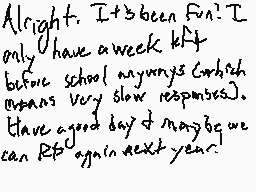 Alright. It's been fun! I
only have a week left
before school anyways (which
means very slow responses).
Have a good day & maybe we
can RP again next year!